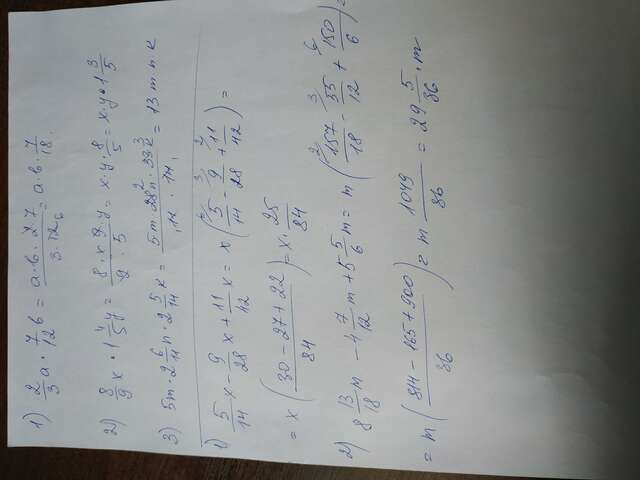 1) 2/3 a · 7/12 b = a·b·2·7/3·12 6 = a·b·7/18.
2) 8/9 x · 1 4/5 y = 8·x·9·y/9·5 = x·y·8/5 = x·y·1 3/5
3) 5m · 2 6/11 n · 2 5/14 k = 5m·28n·33k/11·14 = 13 m n k
1) 5/14 x - 9/28 x + 11/42 x = x (5/14 - 9/28 + 11/42) =
= x (30 - 27 + 22/84) = x · 25/84
2) 8 13/18 m - 4 7/12 m + 5 5/6 m = m (157/18 - 55/12 + 150/6) =
= m (814 - 165 + 900/36) = m 1049/36 = 29 5/36 · m